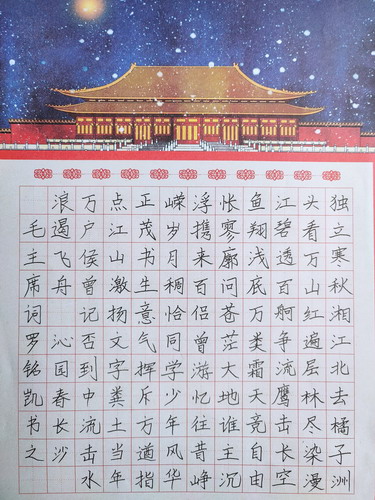 独立寒秋湘江北去橘子洲
头看万山红遍层林尽染漫
江碧透百舸争流鹰击长空
鱼翔浅底万类霜天竞自由
怅廖廓问苍茫大地谁主沉
浮携来百侣曾游忆往昔峥
嵘岁月稠恰同学少年风华
正茂书生意气挥斥方遒指
点江山激扬文字粪土当年
万户侯曾记否到中流击水
浪遏飞舟 沁国春长沙
毛主席词罗铭凯书之